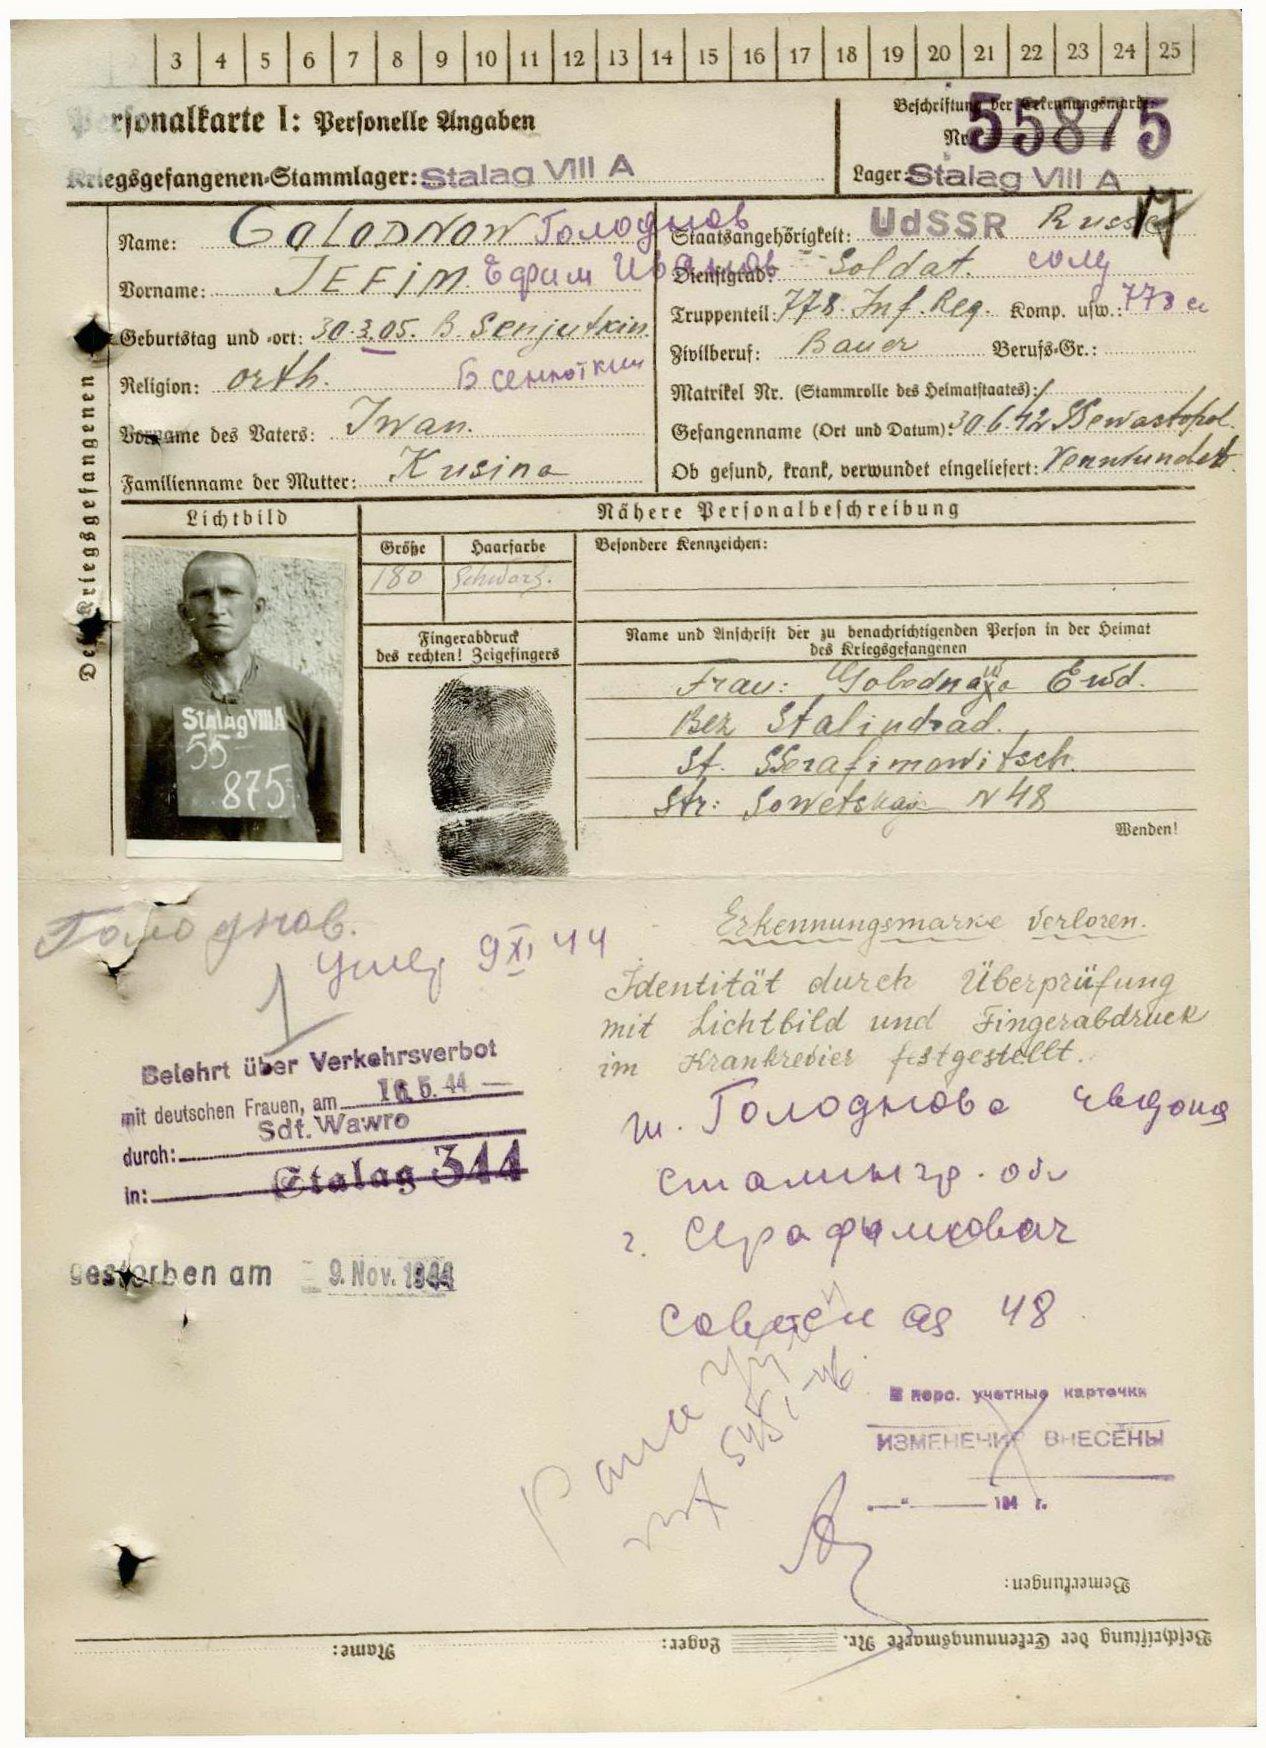 3 4 5 6 7 8 9 10 11 12 13 14 15 16 17 18 19 20 21 22 23 24 25
Personalkarte I: Personelle Angaben
Kriegsgefangenen-Stammlager: Stalag VIII A
Beschriftung der Erkennungsmarke
Nr. 55875
Lager: Stalag VIII A
Des Kriegsgefangenen
Name: GOLODNOW Голоднов
Vorname: JEFIM. Ефим Иванов
Geburtstag und -ort: 30.3.05. B. Senjutkin
Religion: orth. Б сенюткин
Vorname des Vaters: Iwan.
Familienname der Mutter: Kusina
Staatsangehörigkeit: UdSSR Russe
Dienstgrad: Soldat. солд
Truppenteil: 778. Inf. Reg. Komp. usw.: 778
Zivilberuf: Bauer Berufs-Gr.:
Matrikel Nr. (Stammrolle des Heimatstaates): /
Gefangenname (Ort und Datum): 30.6.42 SSewastopol.
Ob gesund, krank, verwundet eingeliefert: Verwundet
Lichtbild
Nähere Personalbeschreibung
Größe Haarfarbe Besondere Kennzeichen:
180 Schwarz.
Stalag VIII A
55
875
Fingerabdruck
des rechten! Zeigefingers
Name und Anschrift der zu benachrichtigenden Person in der Heimat
des Kriegsgefangenen
Frau: Ewd.
Bez Stalindrad.
St. SSerafimowitsch.
Str: Sowetskaja N 48
Wenden!
Голоднов.
умер 9 XI 44
Erkennungsmarke verloren.
Identität durch Überprüfung
mit Lichtbild und Fingerabdruck
im Krankrevier festgestellt.
Belehrt über Verkehrsverbot
mit deutschen Frauen, am 16.5.44
Sdt. Wawro
durch:
in: Stalag 344
gestorben am 9. Nov. 1944
ж. Голоднова
Сталингр. обл
г. Серафимович
Советская 48
В перс. учетные карточки
ИЗМЕНЕНИЯ ВНЕСЁНЫ
194 г.
Bemerkungen:
Beschriftung der Erkennungsmarke Nr. Lager: Name: